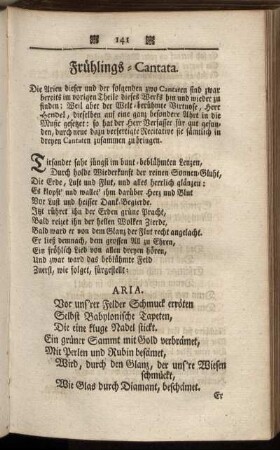 141
Frühlings-Cantata.
Die Arien dieser und der folgenden zwo Cantaten sind zwar
bereits im vorigen Theile dieses Werks hin und wieder zu
finden: Weil aber der Welt-berühmte Virtuose, Herr
Hendel, dieselben auf eine ganz besondere Ahrt in die
Music gesetzet: so hat der Herr Verfasser für gut gefun-
den, durch neue dazu verfertigte Recitative sie sämtlich in
dreyen Cantaten zusammen zu bringen.
Tirsander sahe jüngst im bunt-beblühmten Lenzen,
Durch holde Wiederkunft der reinen Sonnen-Gluht,
Die Erde, Luft und Flut, und alles herrlich glänzen:
Es klopft' und wallet' ihm darüber Herz und Blut
Vor Lust und heisser Dank-Begierde.
Itzt rühret ihn der Erden grüne Pracht,
Bald reizet ihn der hellen Wolken Zierde,
Bald ward er von dem Glanz der Flut recht angelacht.
Er ließ demnach, dem grossen All zu Ehren,
Ein frölich Lied von allen dreyen hören,
Und zwar ward das beblühmte Feld
Zuerst, wie folget, fürgestellt:
ARIA.
Vor uns'rer Felder Schmuck erröten
Selbst Babylonische Tapeten,
Die eine kluge Nadel stickt.
Ein grüner Sammt mit Gold verbrämet,
Mit Perlen und Rubin besämet,
Wird, durch den Glanz, der uns're Wiesen
schmückt,
Wie Glas durch Diamant, beschämet.
Er